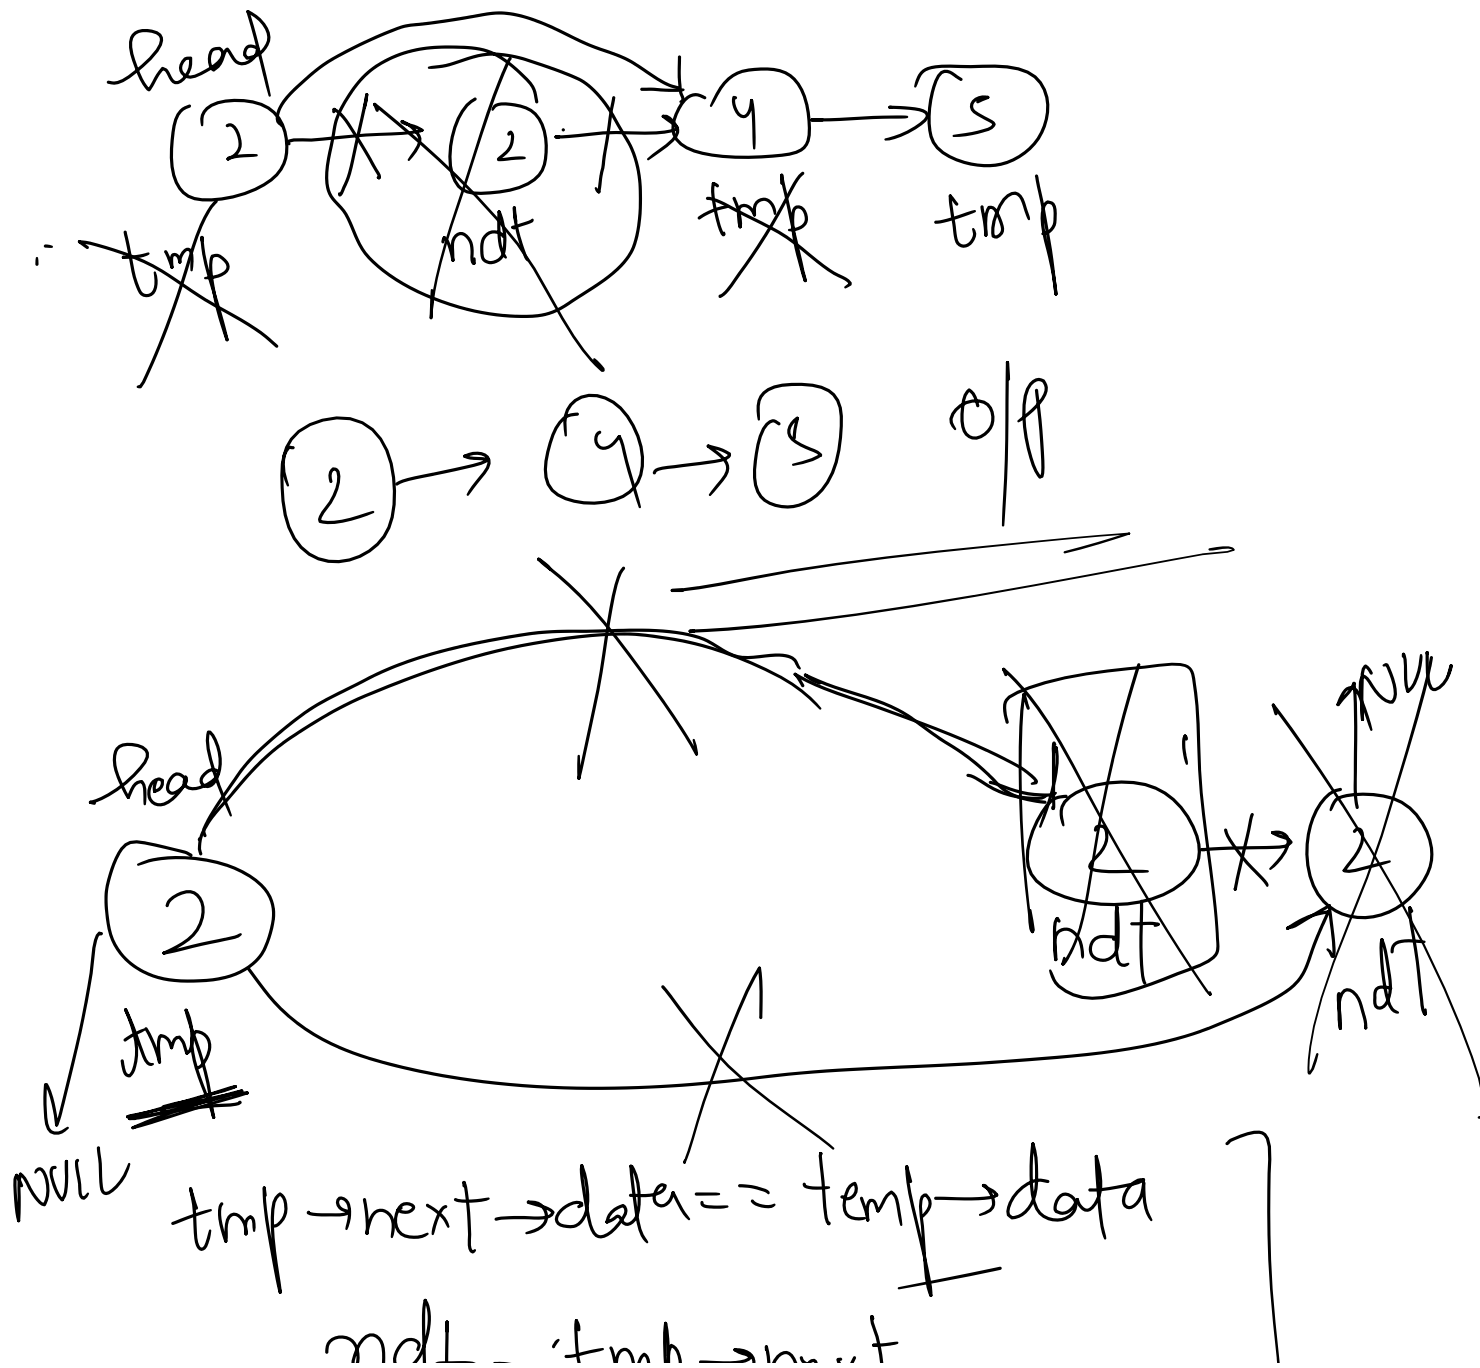 head
2 2 4 5
tmp ndt tmp tmp
2 4 5 O/P
NULL
head
2 2 2
ndt ndt
tmp
NULL
tmp→next→data == temp→data
ndt = tmp→next